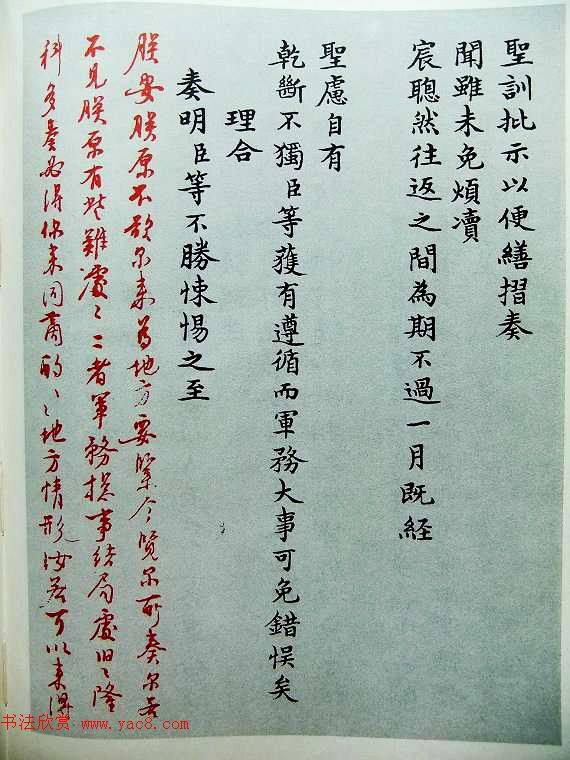 聖訓批示以便繕摺奏
聞雖未免煩瀆
宸聰然往返之間為期不過一月既経
聖慮自有
乾斷不獨臣等獲有遵循而軍務大事可免錯悮矣
理合
奏明臣等不勝悚惕之至
朕安朕原不欲尔来為地方要緊今覽尔所奏尔若
不見朕原有些難處〻二者軍務摠事結局處旧〻隆
科多奏必得你来同商酌〻地方情形汝若可以来得
书法欣赏 www.yac8.com